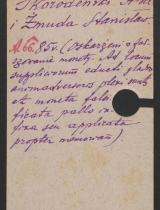 i Żmuda Stanisław.
A 66. 95v (Oskarżeni o fał-
szowanie monety. Ad locum
suppliciorum educti gladio
animadversores pleni sunt,
et moneta fals
ficata pallo in
fixa seu applicata
propter memoriam)